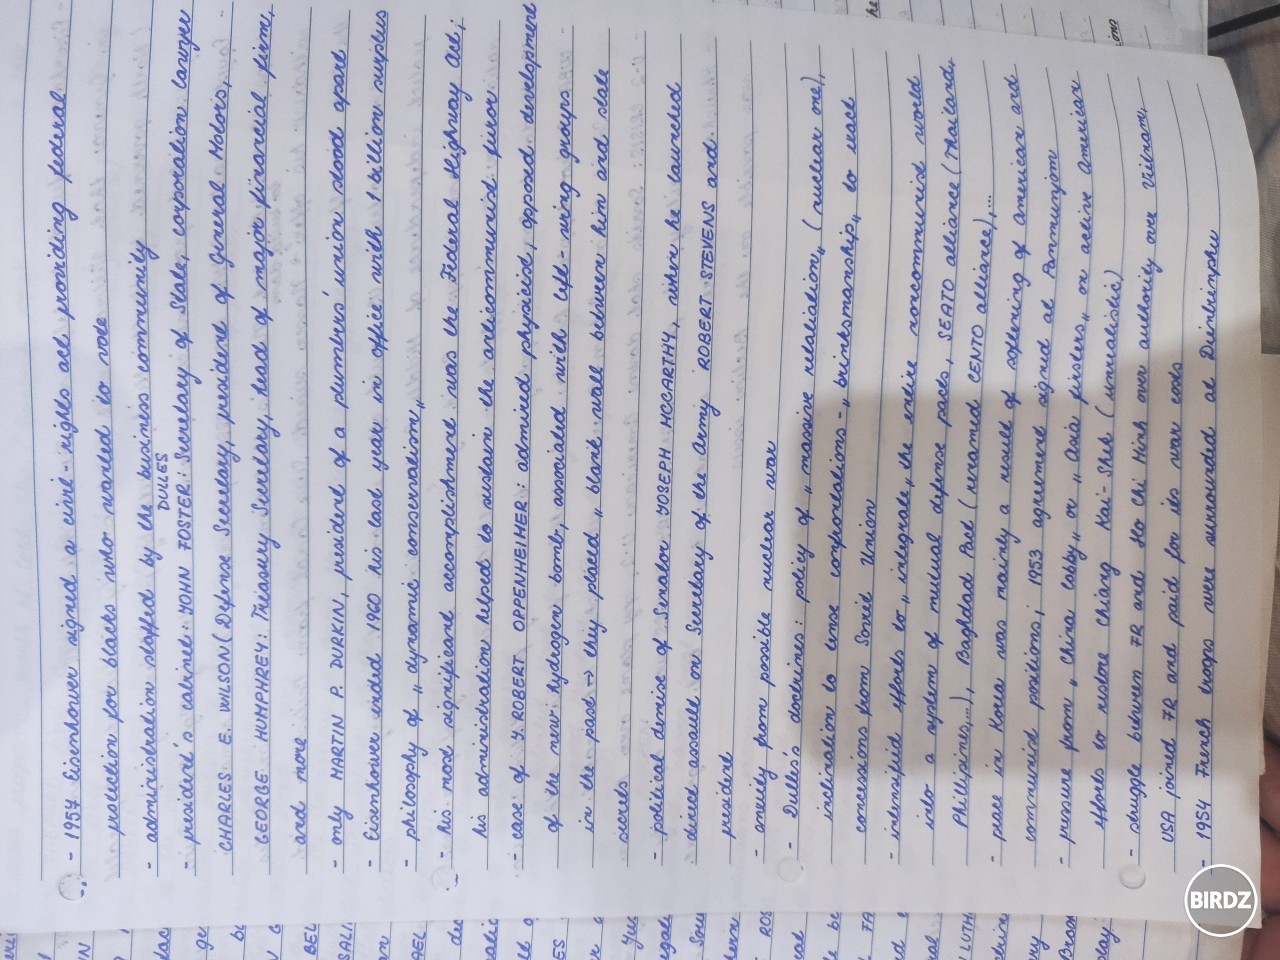 - 1957 Eisenhower signed a civil-rights act providing federal
protection for blacks who wanted to vote
- administration staffed by the business community
DULES
- president's cabinet: YOHN FOSTER: Secretary of State, corporation lawyer
CHARLES E. WILSON (Defense Secretary, president of General Motors,
GEORGE HUMPHREY: Treasury Secretary, head of major financial firm,
and more
- only MARTIN P. DURKIN, president of a plumbres' union stood apart
- Eisenhower ended 1960 his last year in office with 1 billion surplus
- philosophy of „ dynamic conservatism„
- his most significant accomplishment was the Federal Highway Act;
his administration helped to sustain the anticommunist furor
- case of Y. ROBERT OPPENHEIHER: admired physicist, opposed development
of the new hydrogen bomb, associated with left-wing groups
in the past → they placed „ blank wall between him and state
secrets
- political demise of Senator YOSEPH MCCARTHY, when he launched
direct assault on Secretary of the Army ROBERT STEVENS and
president
- anxiety from possible nuclear war
- Dulles doctrines: policy of „ massive retaliation„ (nuclear one),
inclination to tense confrontations - „brinksmanship„ to exact
concessions from Soviet Union
- intensified efforts to „ integrate„ the entire noncommunist world
into a system of mutual defense pacts, SEATO alliance (Thailand,
Phillipines...), Baghdad Pact (renamed CENTO alliance),...
- peace in Korea was mainly a result of softening of American and
communist positions, 1953 agreement signed at Panmunjom
- pressure from „ China lobby„ or „ Asia firsters„ on active American
efforts to restore Chiang Kai-Shek (unrealistic)
- struggle between FR and Ho Chi Minh over authority over Vietnam,
USA joined FR and paid for its war costs
- 1954 French troops were surrounded at Dienbienphu
BIRDZ